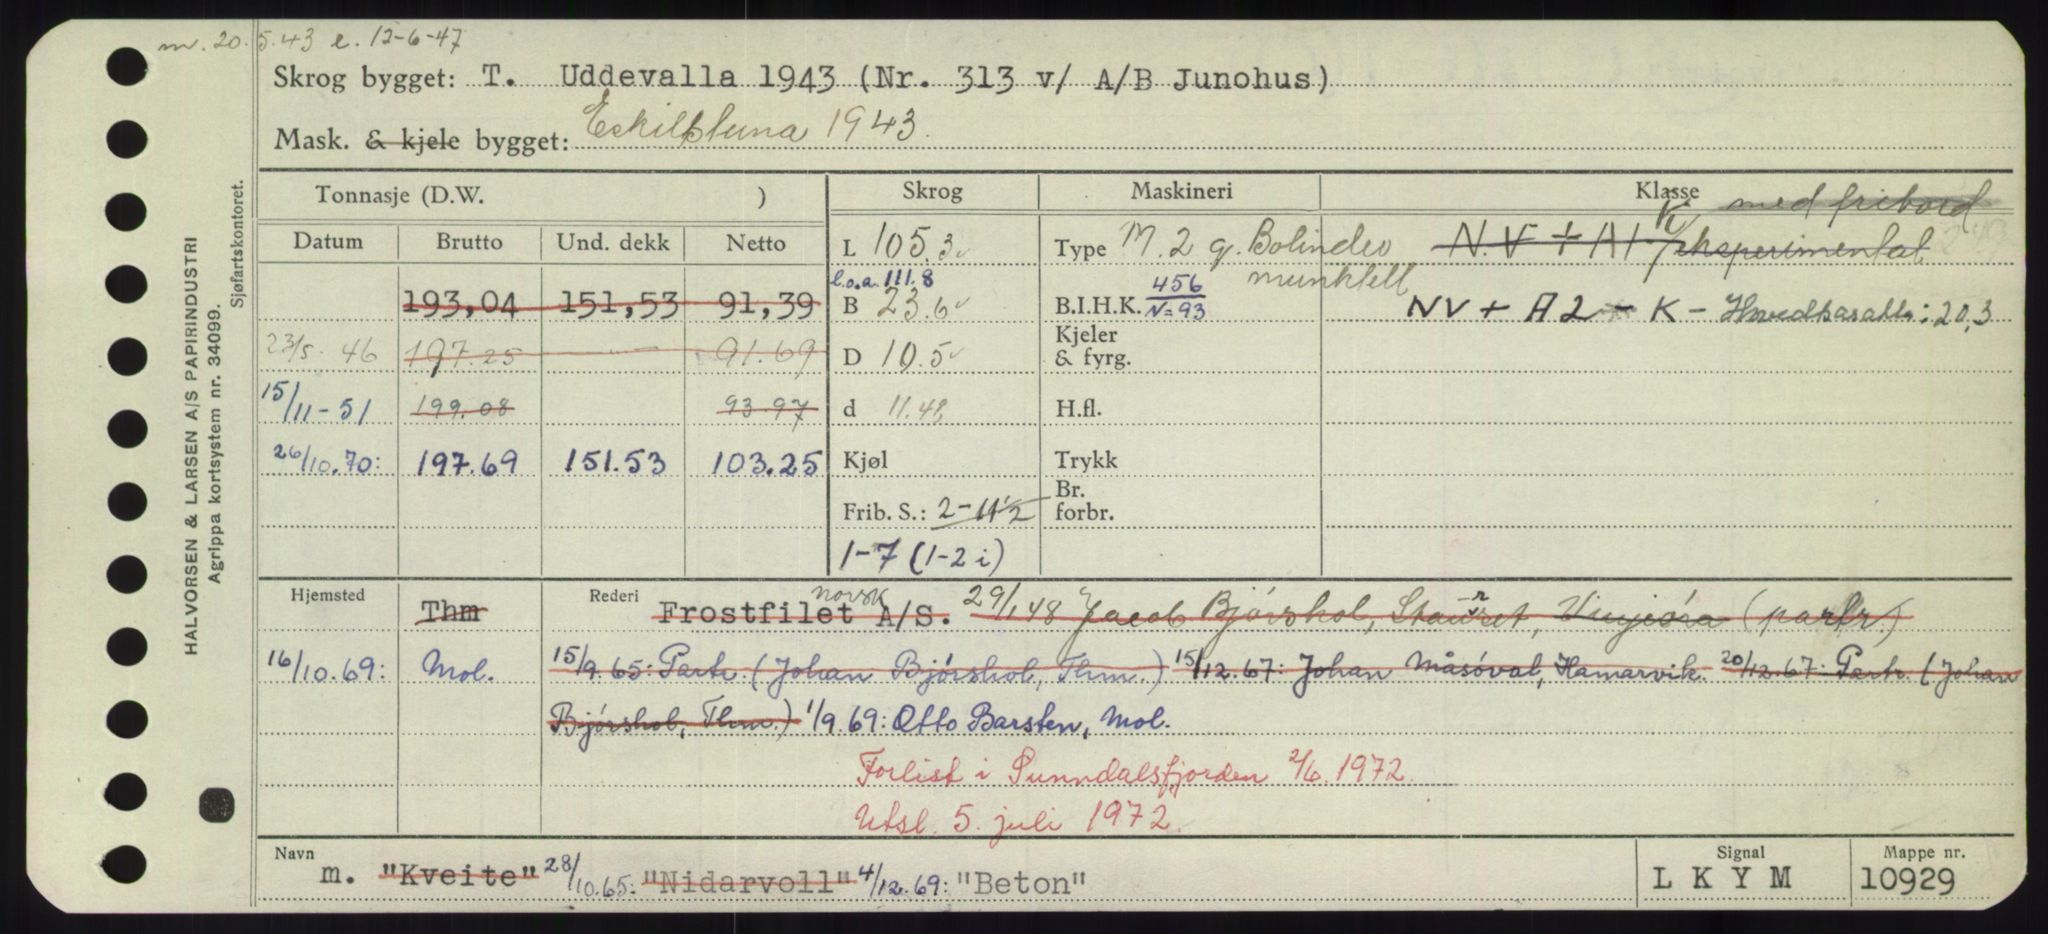 m. 20.5.43 e. 12-6-47
Skrog bygget: T. Uddevalla 1943 (Nr. 313 v/ A/B Junohus)
Mask. & kjele bygget: Eskilstuna 1943.
Tonnasje (D.W. )
Skrog Maskineri Klasse med fribord
Datum Brutto Und. dekk Netto
L 105.3 Type M. 2 g. Bolinder N.V + A1 K eksperimental
l.o.a. 111.8 456 munktell
193,04 151,53 91,39 B 23.6 B.I.H.K. N=93 NV + A2 - K - : 20,3
23/5. 46 197.25 91.69 D 10.5 Kjeler & fyrg.
15/11-51 199.08 93.97 d 11.48 H.fl.
26/10.70: 197.69 151.53 103.25 Kjøl Trykk
Frib. S.: 2-11½ Br. forbr.
1-7 (1-2 i)
Hjemsted Thm Rederi Frostfilet norsk A/S. 29/1 48 Jacob Bjørshol, Vinjeøra (partr.)
16/10.69: Mol. 15/9.65: Partr. (Johan Bjørshol, Thm.) 15/12.67: Johan Måsøval, Hamarvik. 20/12.67: Partr. (Johan
Bjørshol, Thm.) 1/9.69: Otto Barsten, Mol.
Forlist i Sunndalsfjorden 2/6. 1972.
Utsl. 5. juli 1972.
Navn Signal Mappe nr.
m. "Kveite" 28/10.65: "Nidarvoll" 4/12.69: "Beton" L K Y M 10929
HALVORSEN & LARSEN A/S PAPIRINDUSTRI
Agrippa kortsystem nr. 34099.
Sjøfartskontoret.